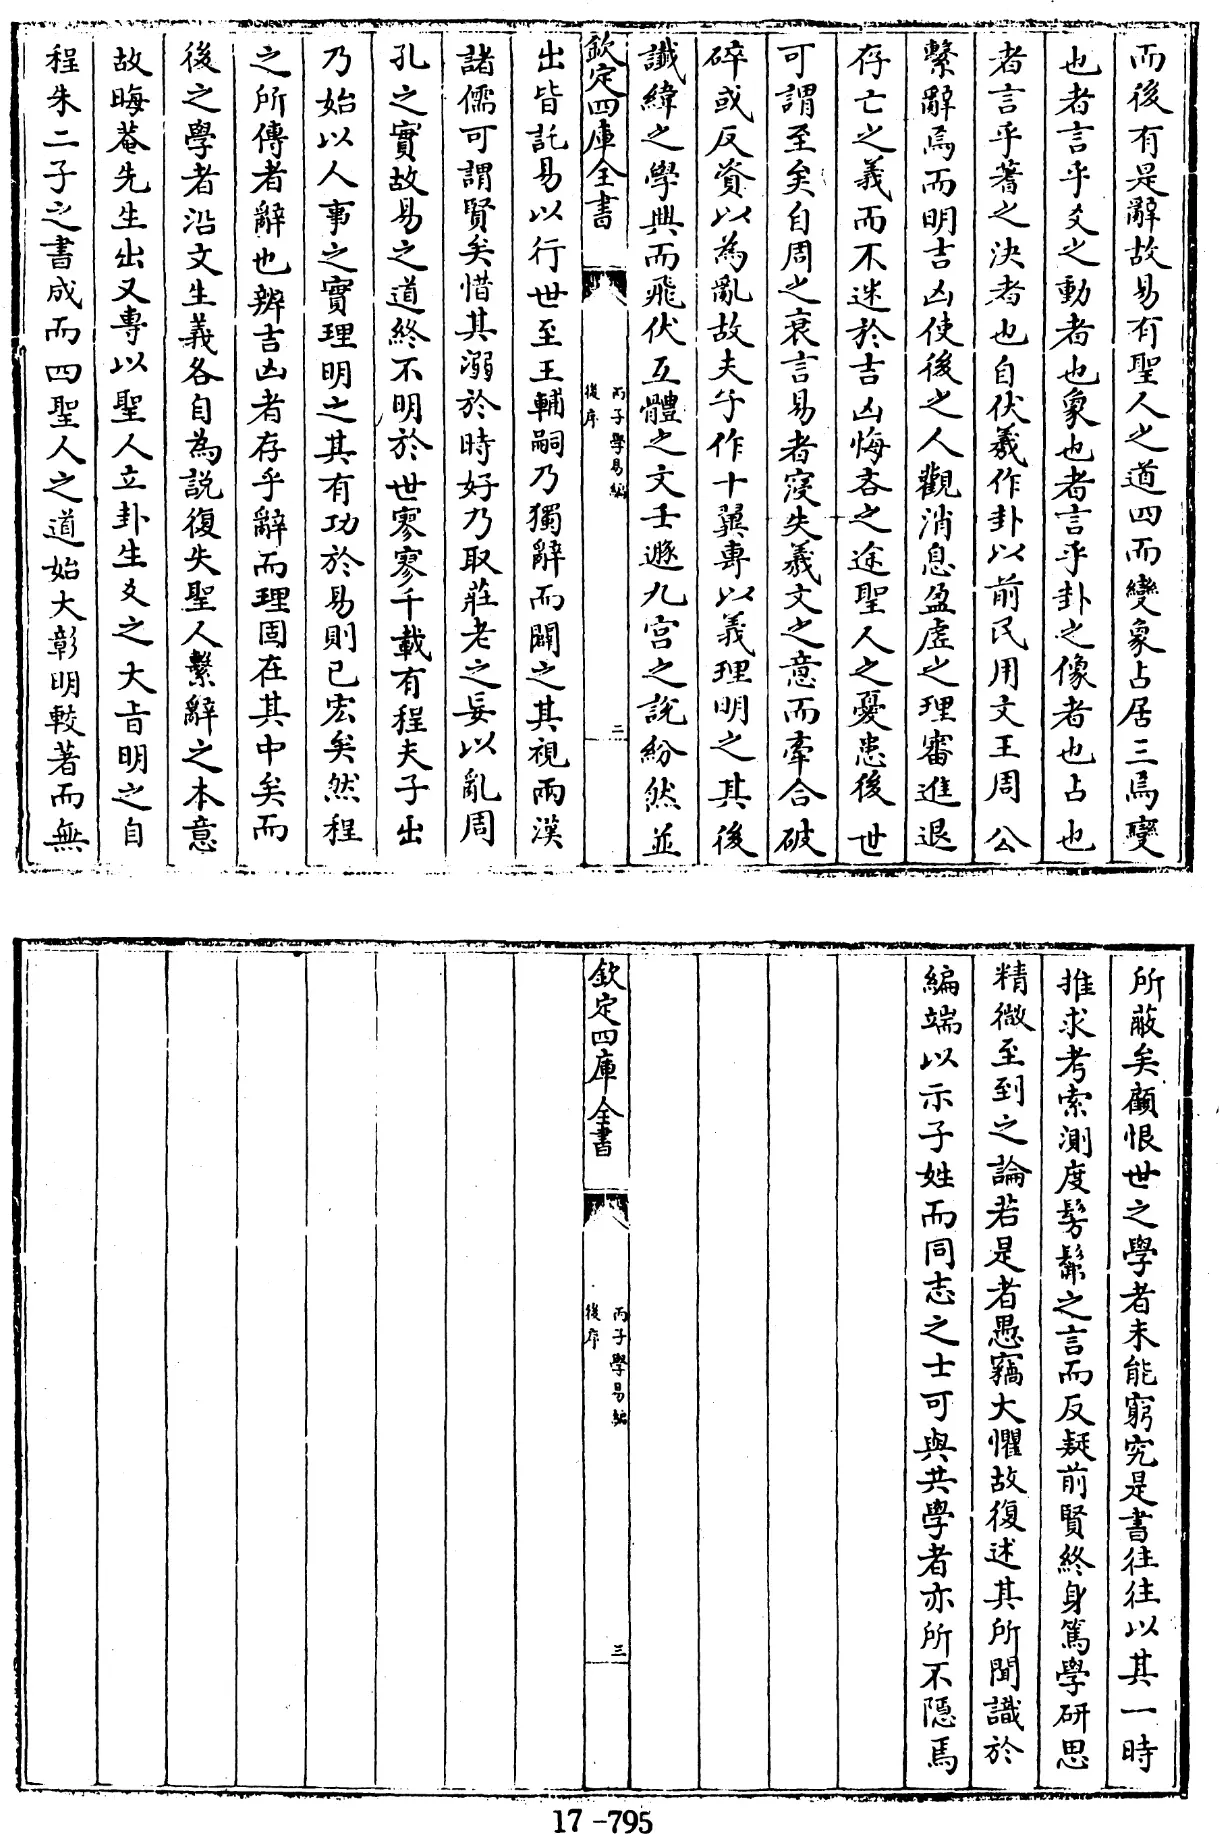 而後有是辭故易有聖人之道四而變象占居三焉變
也者言乎爻之動者也象也者言乎卦之像者也占也
者言乎蓍之決者也自伏羲作卦以前民用文王周公
繫辭焉而明吉凶使後之人觀消息盈虚之理審進退
存亡之義而不迷於吉凶悔吝之途聖人之憂患後世
可謂至矣自周之衰言易者寖失羲文之意而牽合破
碎或反資以為亂故夫子作十翼專以義理明之其後
讖緯之學興而飛伏互體之文壬遯九宫之說紛然並
欽定四庫全書
丙子學易編
後序
二
出皆託易以行世至王輔嗣乃獨辭而闢之其視兩漢
諸儒可謂賢矣惜其溺於時好乃取莊老之妄以亂周
孔之實故易之道終不明於世寥寥千載有程夫子出
乃始以人事之實理明之其有功於易則已宏矣然程
之所傳者辭也辨吉凶者存乎辭而理固在其中矣而
後之學者沿文生義各自為說復失聖人繫辭之本意
故晦菴先生出又專以聖人立卦生爻之大旨明之自
程朱二子之書成而四聖人之道始大彰明較著而無
所蔽矣顧恨世之學者未能窮究是書往往以其一時
推求考索測度髣髴之言而反疑前賢終身篤學研思
精微至到之論若是者愚竊大懼故復述其所聞識於
編端以示子姓而同志之士可與共學者亦所不隱焉
欽定四庫全書
丙子學易編
後序
三
17-795